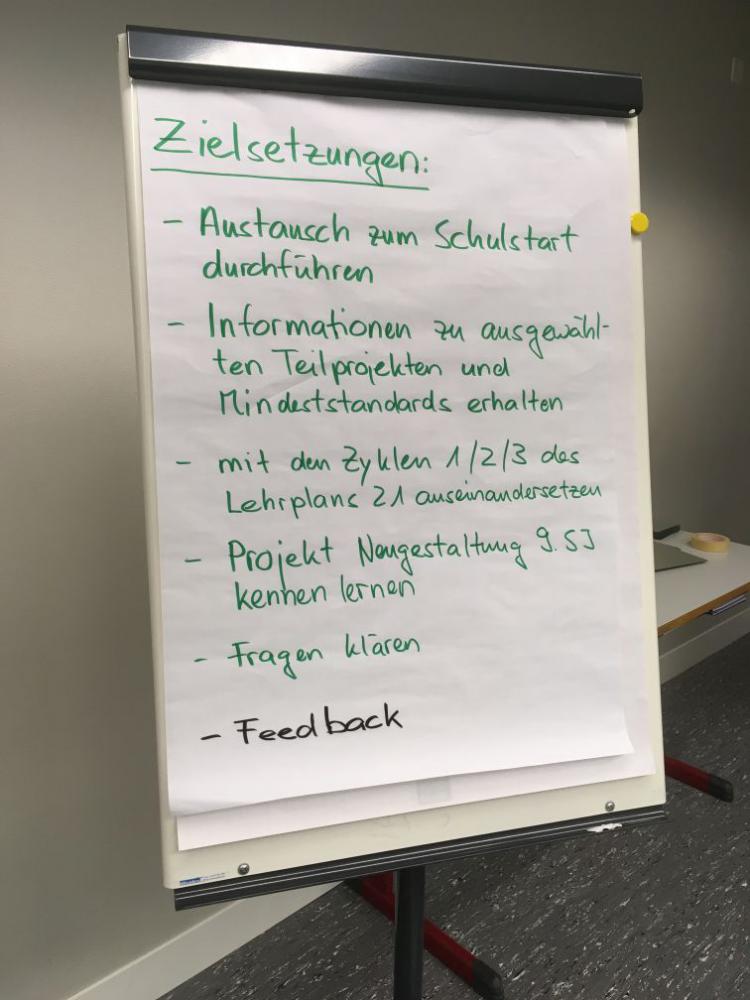 Zielsetzungen:
- Austausch zum Schulstart
durchführen
- Informationen zu ausgewähl-
ten Teilprojekten und
Mindeststandards erhalten
- mit den Zyklen 1/2/3 des
Lehrplans 21 auseinandersetzen
- Projekt Neugestaltung 9. SJ
kennen lernen
- Fragen klären
- Feedback